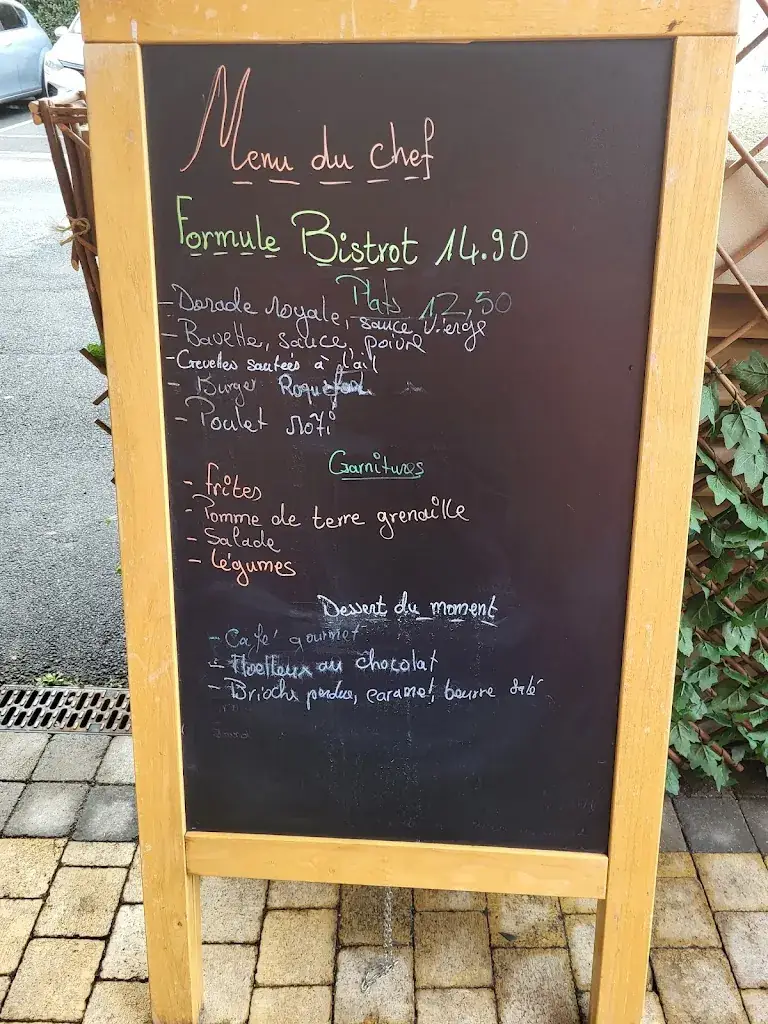 Menu du chef
Formule Bistrot 14.90
Plats 12,50
- Dorade royale, sauce vierge
- Bavette, sauce poivre
- Crevettes sautées à l'ail
- Burger Roquefort
- Poulet rôti
Garnitures
- frites
- Pomme de terre grenaille
- Salade
- légumes
Dessert du moment
- Café gourmet
- Moelleux au chocolat
- Brioche perdue, caramel, beurre salé